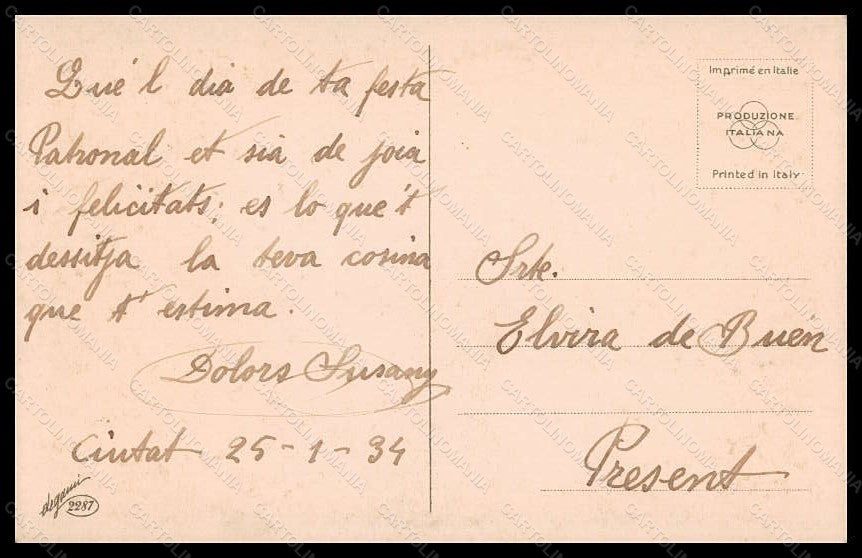 Qué'l dia de ta festa
Patronal et sia de joia
i felicitats; es lo que't
dessitja la teva cosina
que t'estima.
Dolors Susany
Ciutat 25-1-34
degami
2287
Imprimé en Italie
PRODUZIONE
ITALIANA
Printed in Italy
Srte.
Elvira de Buen
Present
CARTOLINOMANIA